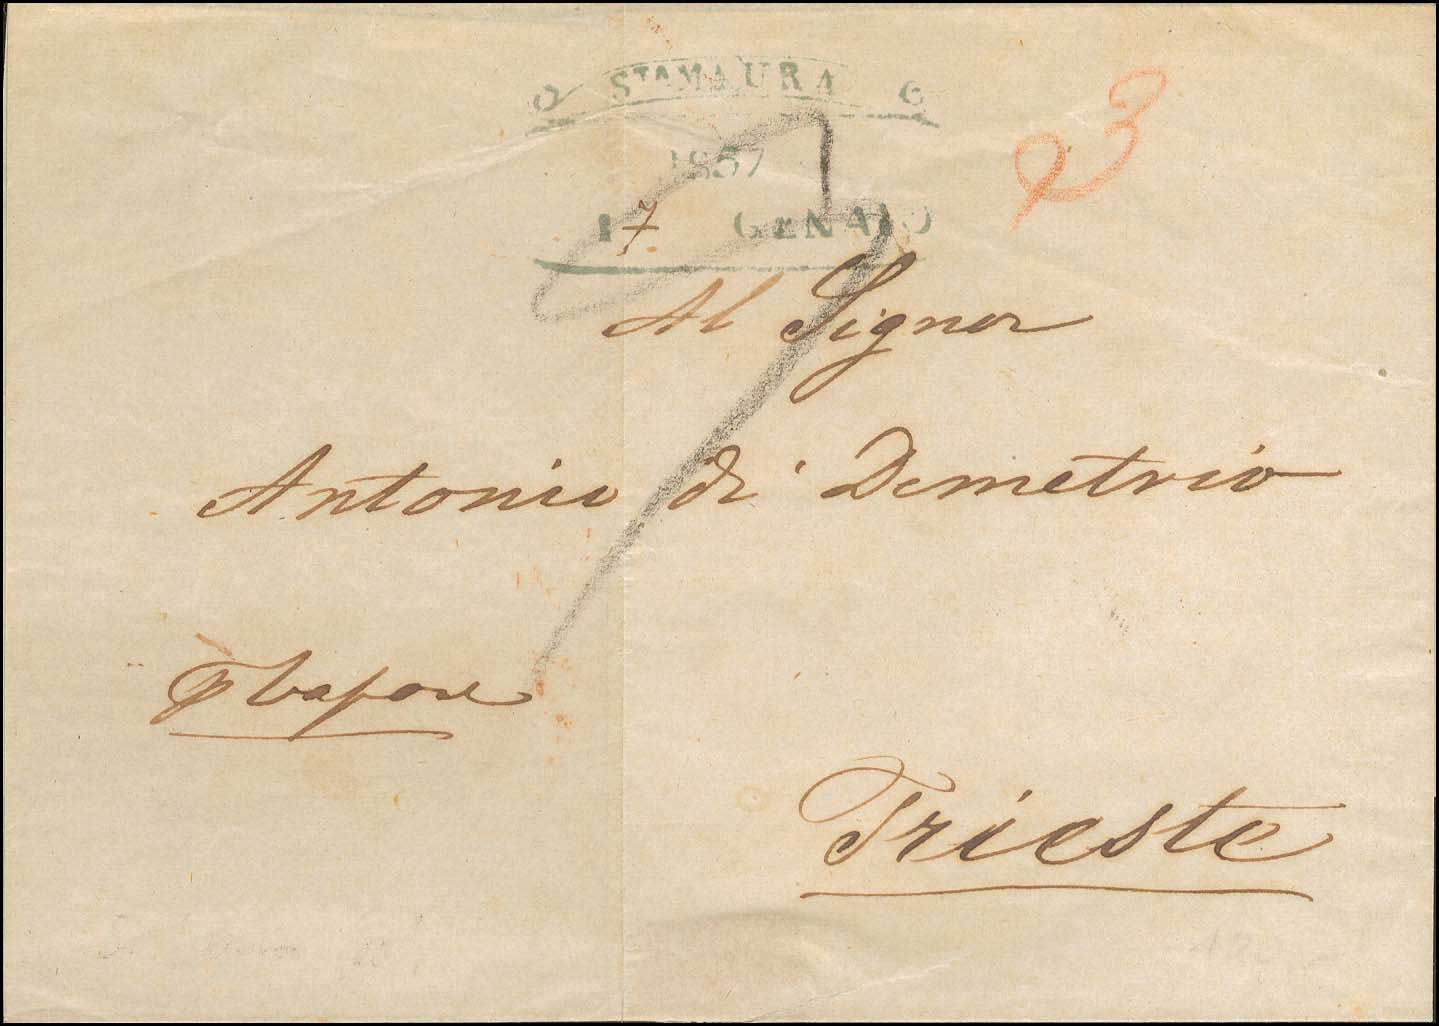 STA MAURA
1857
17 GENAIO
Al Signor
Antonio di Demetrio
p Vapore
Trieste